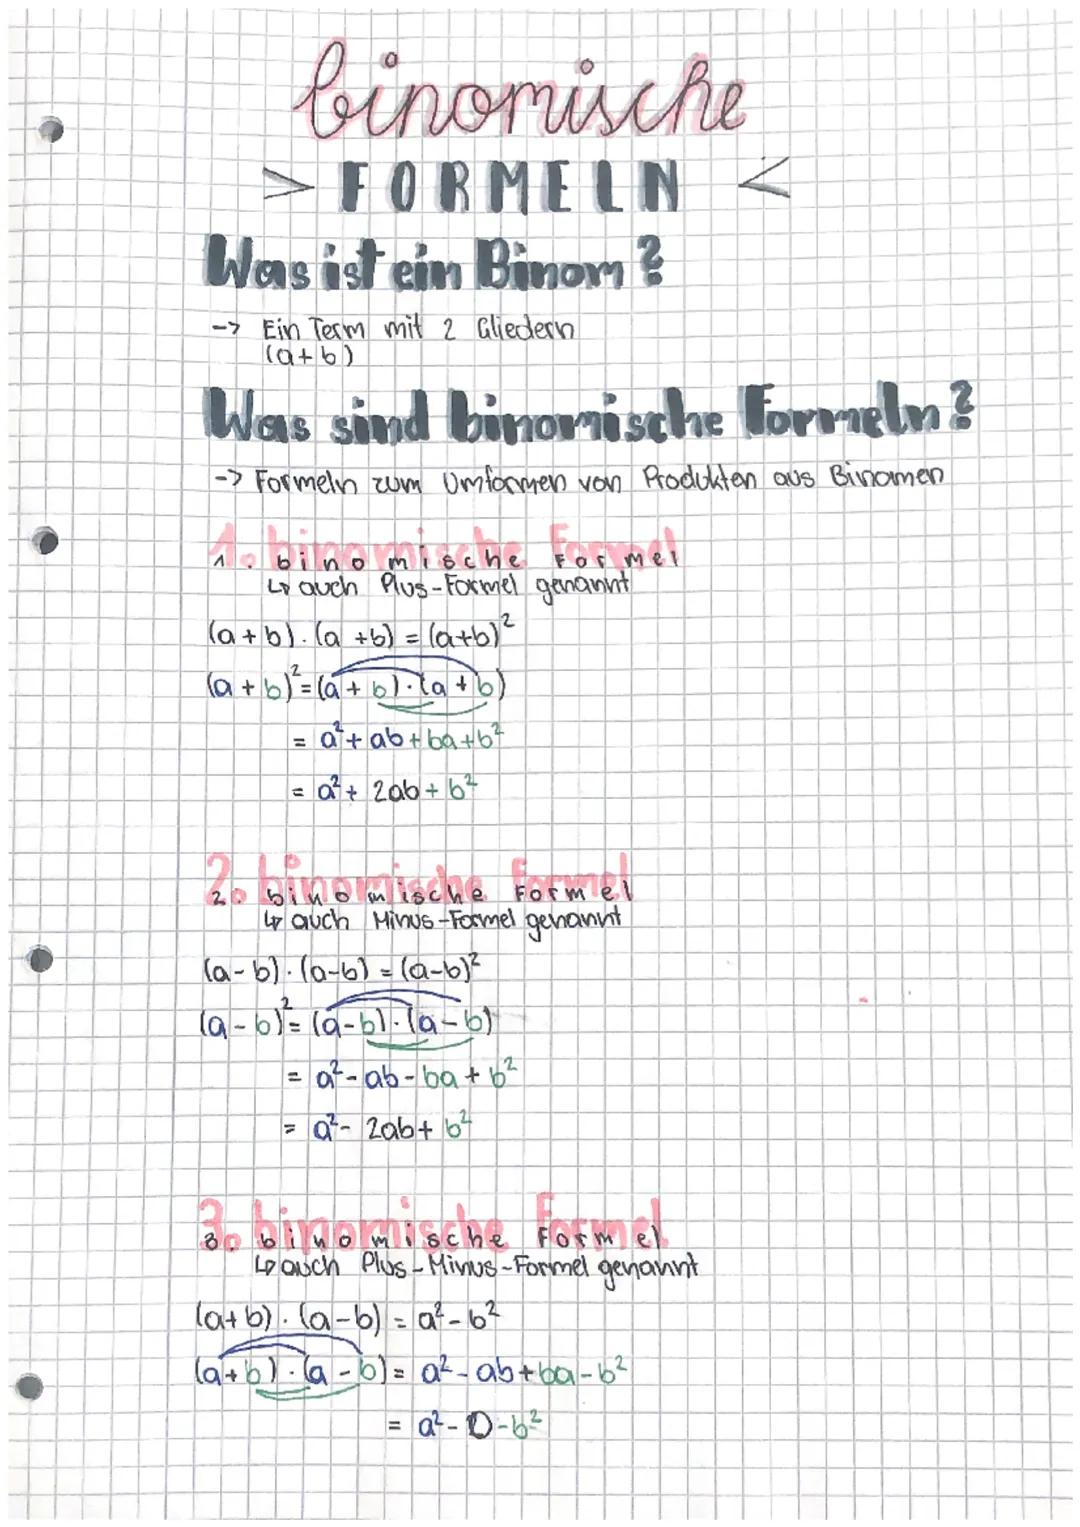 binomische
> FORMELN <
Was ist ein Binom?
-> Ein Term mit 2 Gliedern
(a+b)
Was sind binomische Formeln?
-> Formeln zum Umformen von Produkten aus Binomen
1. binomische Formel
↳ auch Plus-Formel genannt
(a+b)·(a+b) = (a+b)²
(a+b)²=(a+b)·(a+b)
= a²+ab+ba+b²
= a²+2ab+b²
2. binomische Formel
↳ auch Minus-Formel genannt
(a-b)·(a-b) = (a-b)²
(a-b)²=(a-b)·(a-b)
= a²-ab-ba+b²
= a²-2ab+b²
3. binomische Formel
↳ auch Plus-Minus-Formel genannt
(a+b)·(a-b) = a²-b²
(a+b)·(a-b) = a²-ab+ba-b²
= a²-0-b²